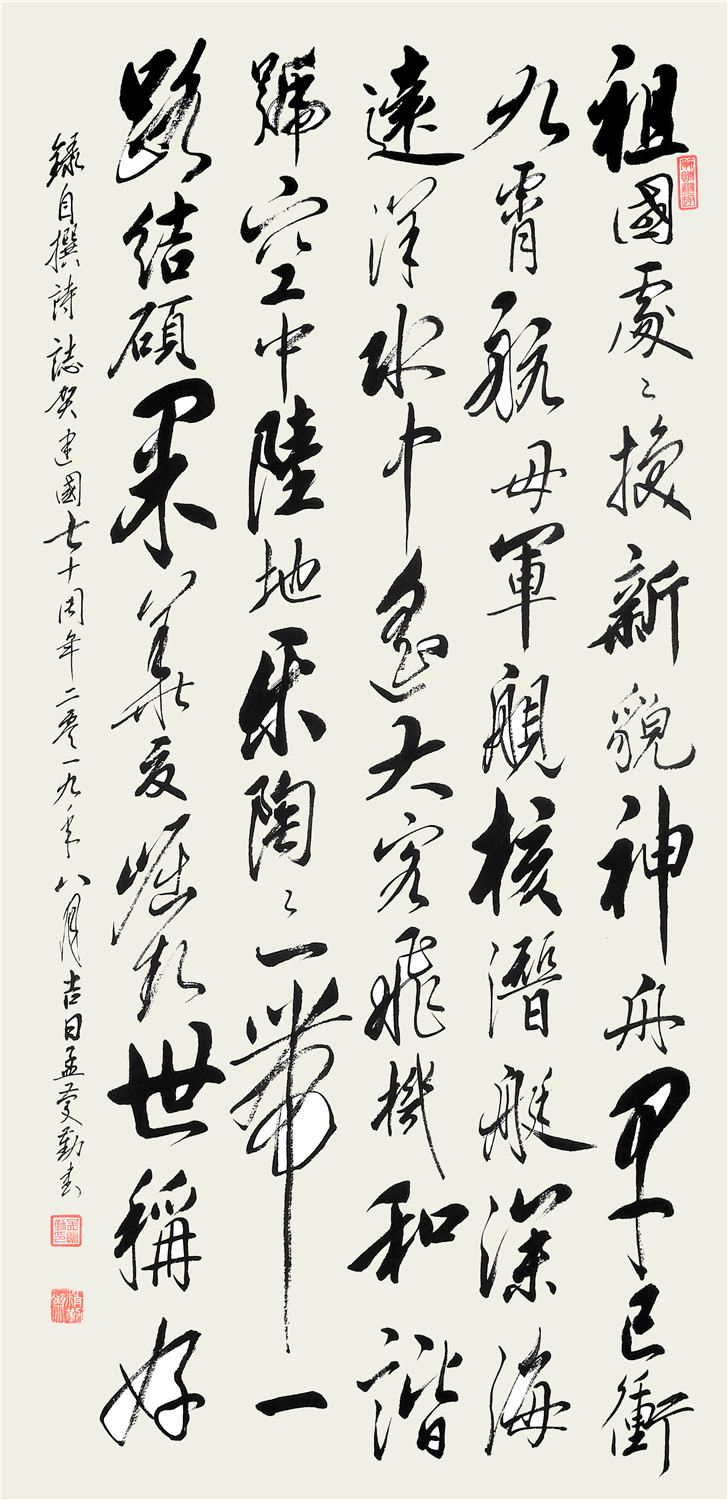 祖國處〻換新貌神舟早已衝
九霄航母軍艦核潛艇深海
遠洋水中遙大客飛機和諧
號空中陸地乐陶〻一帶一
路結碩果華夏崛起世稱好
錄自撰詩誌賀建國七十周年二零一九年八月吉日孟慶勤書